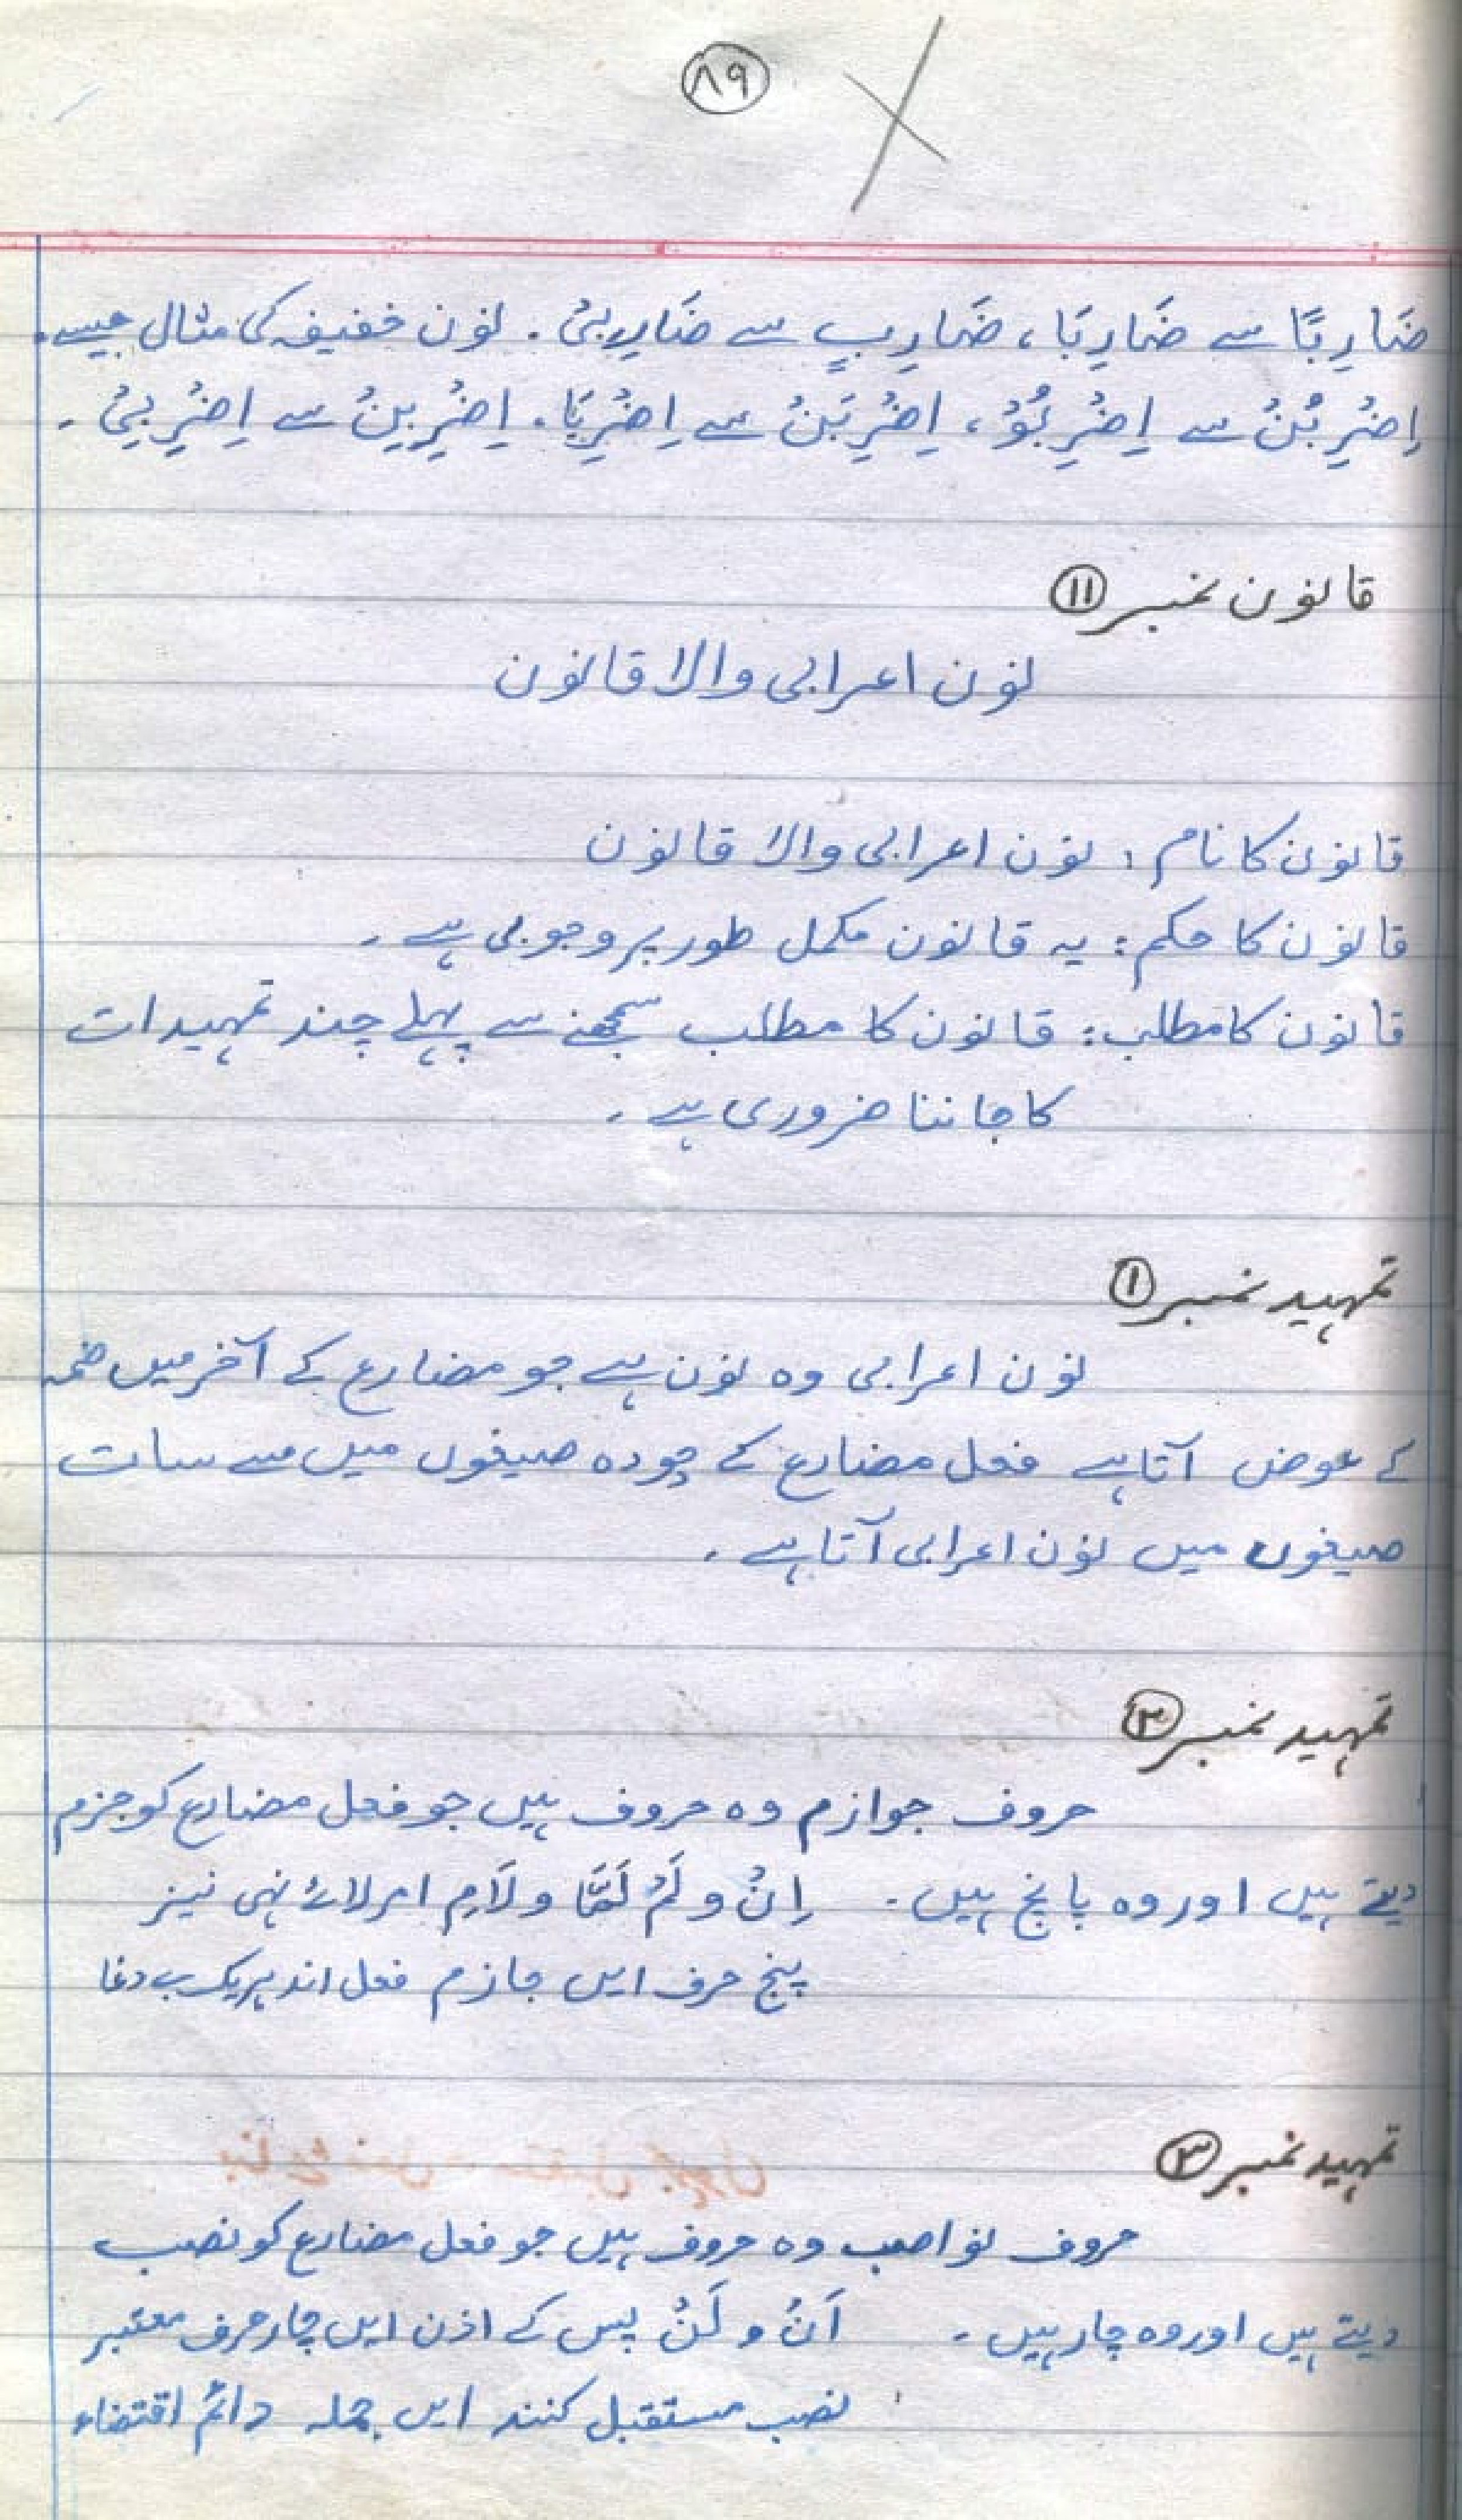 ۸۹
ضَارِبًا سے ضَارِبَا، ضَارِبٍ سے ضَارِبِیْ۔ نون خفیفہ کی مثال جیسے
اِضْرِبُنْ سے اِضْرِبُوْ، اِضْرِبَنْ سے اِضْرِبَا، اِضْرِبِنْ سے اِضْرِبِیْ۔
قانون نمبر ۱۱
نون اعرابی والا قانون
قانون کا نام: نون اعرابی والا قانون
قانون کا حکم: یہ قانون مکمل طور پر وجوبی ہے۔
قانون کا مطلب: قانون کا مطلب سمجھنے سے پہلے چند تمہیدات
کا جاننا ضروری ہے۔
تمہید نمبر ۱
نون اعرابی وہ نون ہے جو مضارع کے آخر میں ضمہ
کے عوض آتا ہے فعل مضارع کے چودہ صیغوں میں سے سات
صیغوں میں نون اعرابی آتا ہے۔
تمہید نمبر ۲
حروف جوازم وہ حروف ہیں جو فعل مضارع کو جزم
دیتے ہیں اور وہ پانچ ہیں۔ اِنْ و لَمْ لَمَّا و لَامِ امر لائے نہی نیز
پنج حرف ایں جازم فعل اند ہریک بے دغا
تمہید نمبر ۳
حروف نواصب وہ حروف ہیں جو فعل مضارع کو نصب
دیتے ہیں اور وہ چار ہیں۔ اَنْ و لَنْ پس کے اذن ایں چار حرف معتبر
نصب مستقبل کنند ایں جملہ دائم اقتضاء